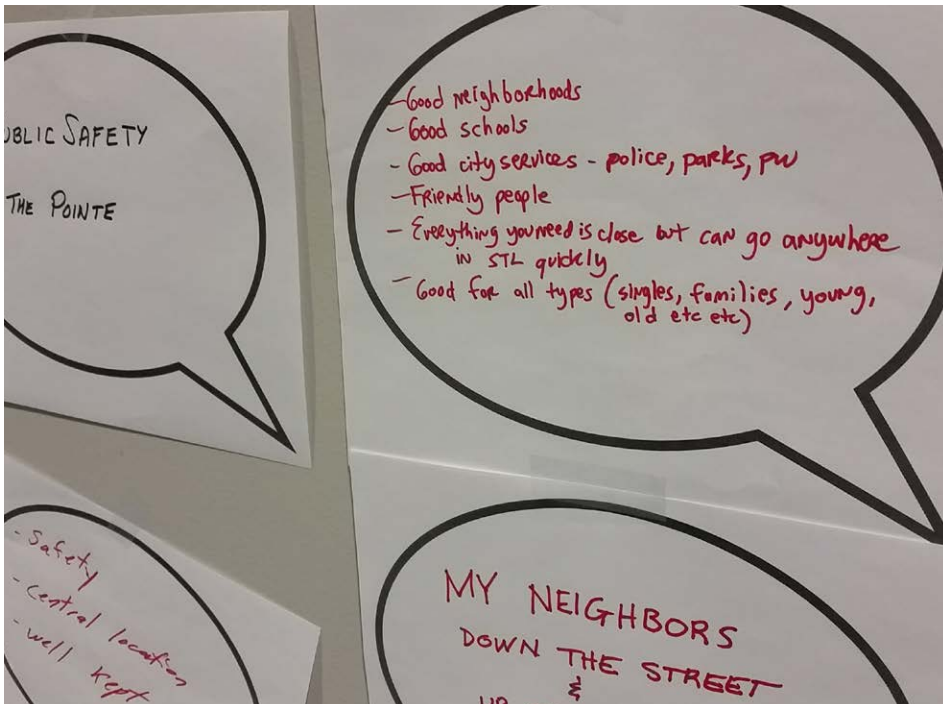 PUBLIC SAFETY
THE POINTE
- Good neighborhoods
- Good schools
- Good city services - police, parks, pw
- Friendly people
- Everything you need is close but can go anywhere
in STL quickly
- Good for all types (singles, families, young,
old etc etc)
- Safety
- central location
- well kept
MY NEIGHBORS
DOWN THE STREET
&